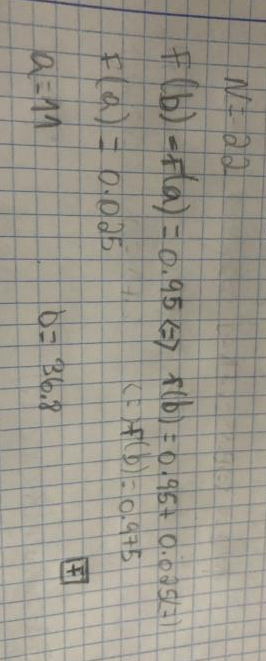 N=22
F(b)-F(a)=0.95 <=> F(b)=0.95+0.025(=)
F(a)=0.025 <=> F(b)=0.975
a=11 b=36.8
F